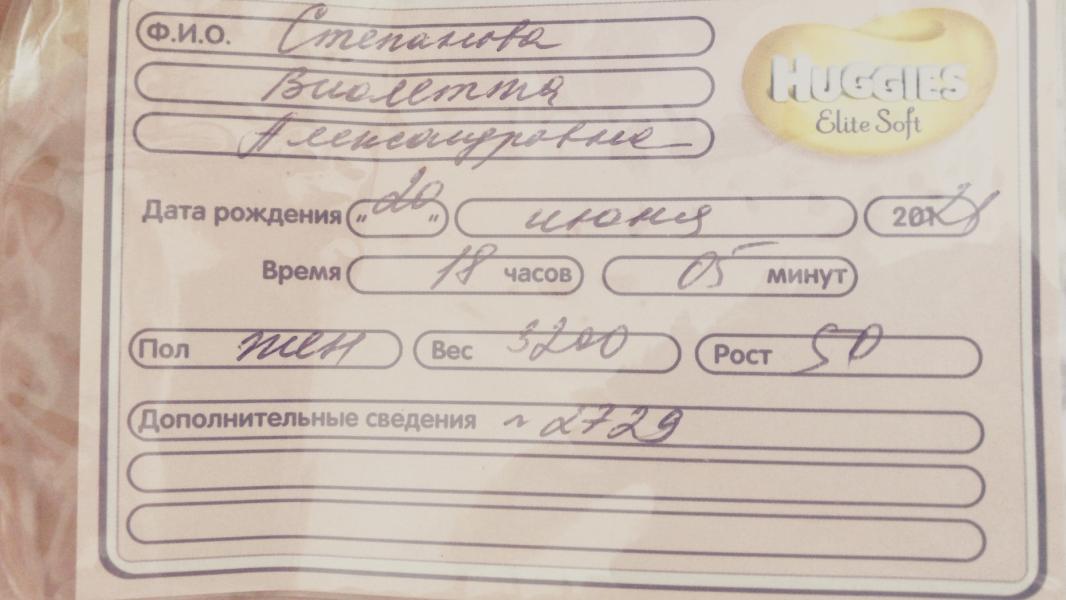 Ф.И.О. Степанова
Виолетта
HUGGIES
Elite Soft
Александровна
Дата рождения „20" июня 2021
Время 18 часов 05 минут
Пол жен Вес 3200 Рост 50
Дополнительные сведения ~ 2729